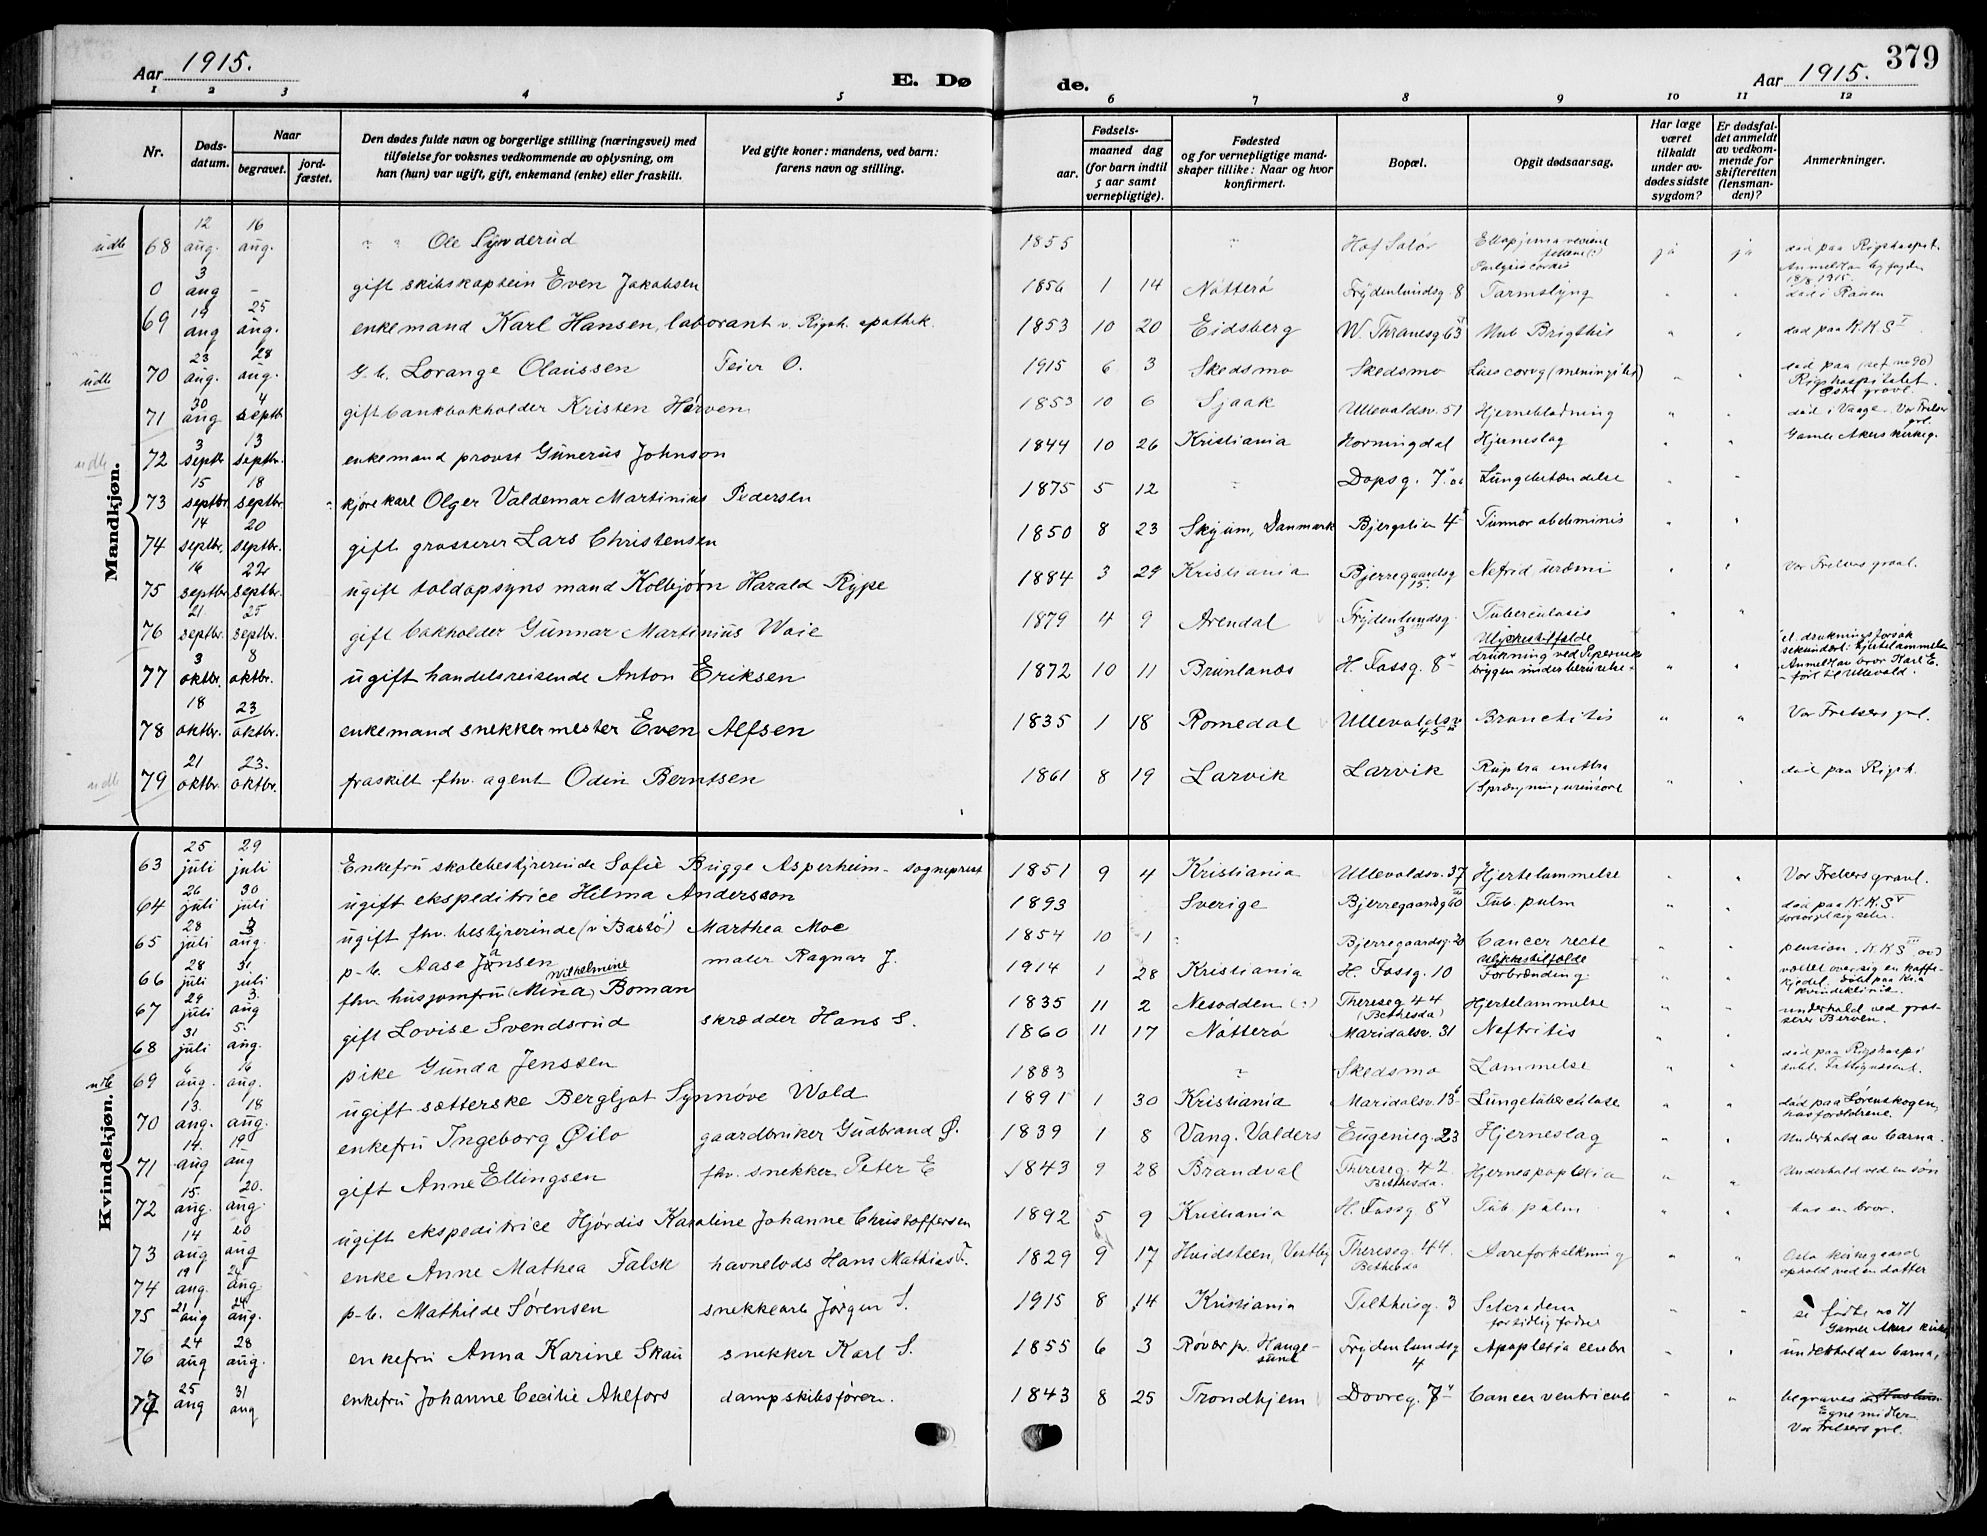 Aar 1915. E. Døde. Aar 1915. 379
1 2 3 4 5 6 7 8 9 10 11 12
Nr. Døds-datum. Naar begravet. jord-fæstet. Den dødes fulde navn og borgerlige stilling (næringsvei) med tilføielse for voksnes vedkommende av oplysning, om han (hun) var ugift, gift, enkemand (enke) eller fraskilt. Ved gifte koner: mandens, ved barn: farens navn og stilling. Fødsels- aar. maaned dag (for barn indtil 5 aar samt vernepligtige). Fødested og for vernepligtige mand-skaper tillike: Naar og hvor konfirmert. Bopæl. Opgit dødsaarsag. Har læge været tilkaldt under av-dødes sidste sygdom? Er dødsfal-det anmeldt av vedkom-mende for skifteretten (lensman-den)? Anmerkninger.
Mandkjøn.
udb 68 12 aug. 16 aug. " " Ole Synderud 1855 " Hof Solør ja ja død paa Rigshospit.
0 3 aug - gift skibskaptein Even Jakobsen 1856 1 14 Nøtterø Frydenlundsg. 8 Tarmslyng " " død i
69 19 aug 25 aug. enkemand Karl Hansen, laborant v. Rigsh. apothek. 1853 10 20 Eidsberg W. Thranesg 63 Mb Brigthii " " død paa K.K.S
udb 70 23 aug. 28 aug. g.b. Lorange Olaussen Feier O. 1915 6 3 Skedsmo Skedsmo (meningiter) " " død paa Rigshospitalet.
71 30 aug 4 septb gift bankbokholder Kristen Hørven 1853 10 6 Sjaak Ullevoldsv. 51 Hjerneblødning " " død i Vaage. Vor Frelser grl.
udb 72 3 septb 13 septbr. enkemand provst Gunerus Johnson 1844 10 26 Kristiania Horningdal Hjerneslag " " Gamle Akers kirkeg.
73 15 septbr. 18 septbr. kjørekarl Olger Valdemar Martinius Pedersen 1875 5 12 " Dopsg. 7 Lungebetændelse " "
74 14 septbr. 20 septbr. gift grosserer Lars Christensen 1850 8 23 Skyum, Danmark Bjergstien 4 Tumor abdominis " "
75 16 septbr. 22 septbr. ugift toldopsynsmand Kolbjørn Harald Rype 1884 3 29 Kristiania Bjerregaardsg 15. Nefrid uræmi " " Vor Frelsers gravl.
76 21 septbr. 25 septbr. gift bokholder Gunnar Martinius Waie 1879 4 9 Arendal Frydenlundsg. 3 Tuberculosis " "
77 3 oktbr. 8 oktbr. ugift handelsreisende Anton Eriksen 1872 10 11 Brunlanes H. Fossg. 8 Ulykkestilfælde drukning ved Pipervik bryggen under beruselse " " et drukningsforsøk sekundært: hjertelammelse Anmelt av bror Karl E. ført til Ullevold.
78 18 oktbr. 23 oktbr. enkemand snekkermester Even Alfsen 1835 1 18 Romedal Ullevoldsv 45 Bronchitis " " Vor Frelsers grl.
udb 79 21 oktbr. 23. oktbr. fraskilt fhv. agent Odin Berntsen 1861 8 19 Larvik Larvik Ruptra urethra " " død paa Rigsh.
Kvindekjøn.
63 25 juli 29 juli Enkefru skolebestyrerinde Sofie Bugge Asperheim - sogneprest 1851 9 4 Kristiania Ullevoldsv. 37 Hjertelammelse " " Vor Frelsers gravl.
64 26 juli 30 juli ugift ekspeditrice Hilma Andersson 1893 Sverige Bjerregaardsg 60 Tub. pulm " " død paa K.K.S
65 28 juli 3 aug. ugift fhv. bestyrerinde (v Bastø) Marthea Moe 1854 10 1 " Bjerregaardsg. 20 Cancer recte " " pension. K.K.S
66 28 juli 31. juli p-b. Aase Jansen maler Ragnar J. 1914 1 28 Kristiania H. Fossg. 10 Ulykkestilfælde Forbrænding. " " væltet over sig en kaffe-kjedel. Død paa Kr.a Kvindeklinik.
67 29 juli 3. aug fhv. husjomfru (Mina) Wilhelmine Boman 1835 11 2 Nesodden (?) Thereseg 44 (Bethesda) Hjertelammelse " " underhold ved grosserer Berven.
68 31 juli 5. aug. gift Lovise Svendsrud skrædder Hans S. 1860 11 17 Nøtterø Maridalsv. 31 Neftritis " "
udb 69 6 aug. 16 aug. pike Gunda Jenssen 1883 " Skedsmo Lammelse " " død paa Rigshospi
70 13. aug. 18 aug. ugift sætterske Bergljot Synnøve Wold 1891 1 30 Kristiania Maridalsv. 13 Lungetuberculose " " død paa Lørenskogen, hos forældrene.
71 14. aug 19 aug enkefru Ingeborg Øilo gaardbruker Gudbrand Ø. 1839 1 8 Vang. Valders Eugenieg. 23 Hjerneslag " " Underhold av barna.
72 15. aug. 20. aug. gift Anne Ellingsen fhv. snekker Peter E 1843 9 28 Brandval Thereseg. 42. Bethesda. Hjerneapoplexia " " Underhold ved en søn
73 14 aug 20 aug ugift ekspeditrice Hjørdis Karoline Johanne Christoffersen 1892 5 9 Kristiania H. Fossg 8 Tub. pulm " " hos en bror.
74 19 aug. 24 aug enke Anne Mathea Falck havnelods Hans Mathias F. 1829 9 17 Hvidsteen, Vestby Thereseg. 44. Bethesda Aareforkalkning " " Oslo kirkegaard ophold ved en datter
75 21 aug 24 aug. p-b. Mathilde Sørensen snekkearb Jørgen S. 1915 8 14 Kristiania Telthusg. 3 for tidlig født " " se fødte no 71 Gamle Akers kirkeg
76 24 aug 28 aug. enkefru Anna Karine Skau snekker Karl S. 1855 6 3 Røvær pr. Haugesund Frydenlundsg 4 Apoplexia cerebr " " underhold av barna.
77 25 aug 31 aug enkefru Johanne Cecilie Ahlfors dampskibsfører. 1843 8 25 Trondhjem Dovreg. 7 Cancer ventriculi " " begraves Egne midler Vor Frelsers grl.